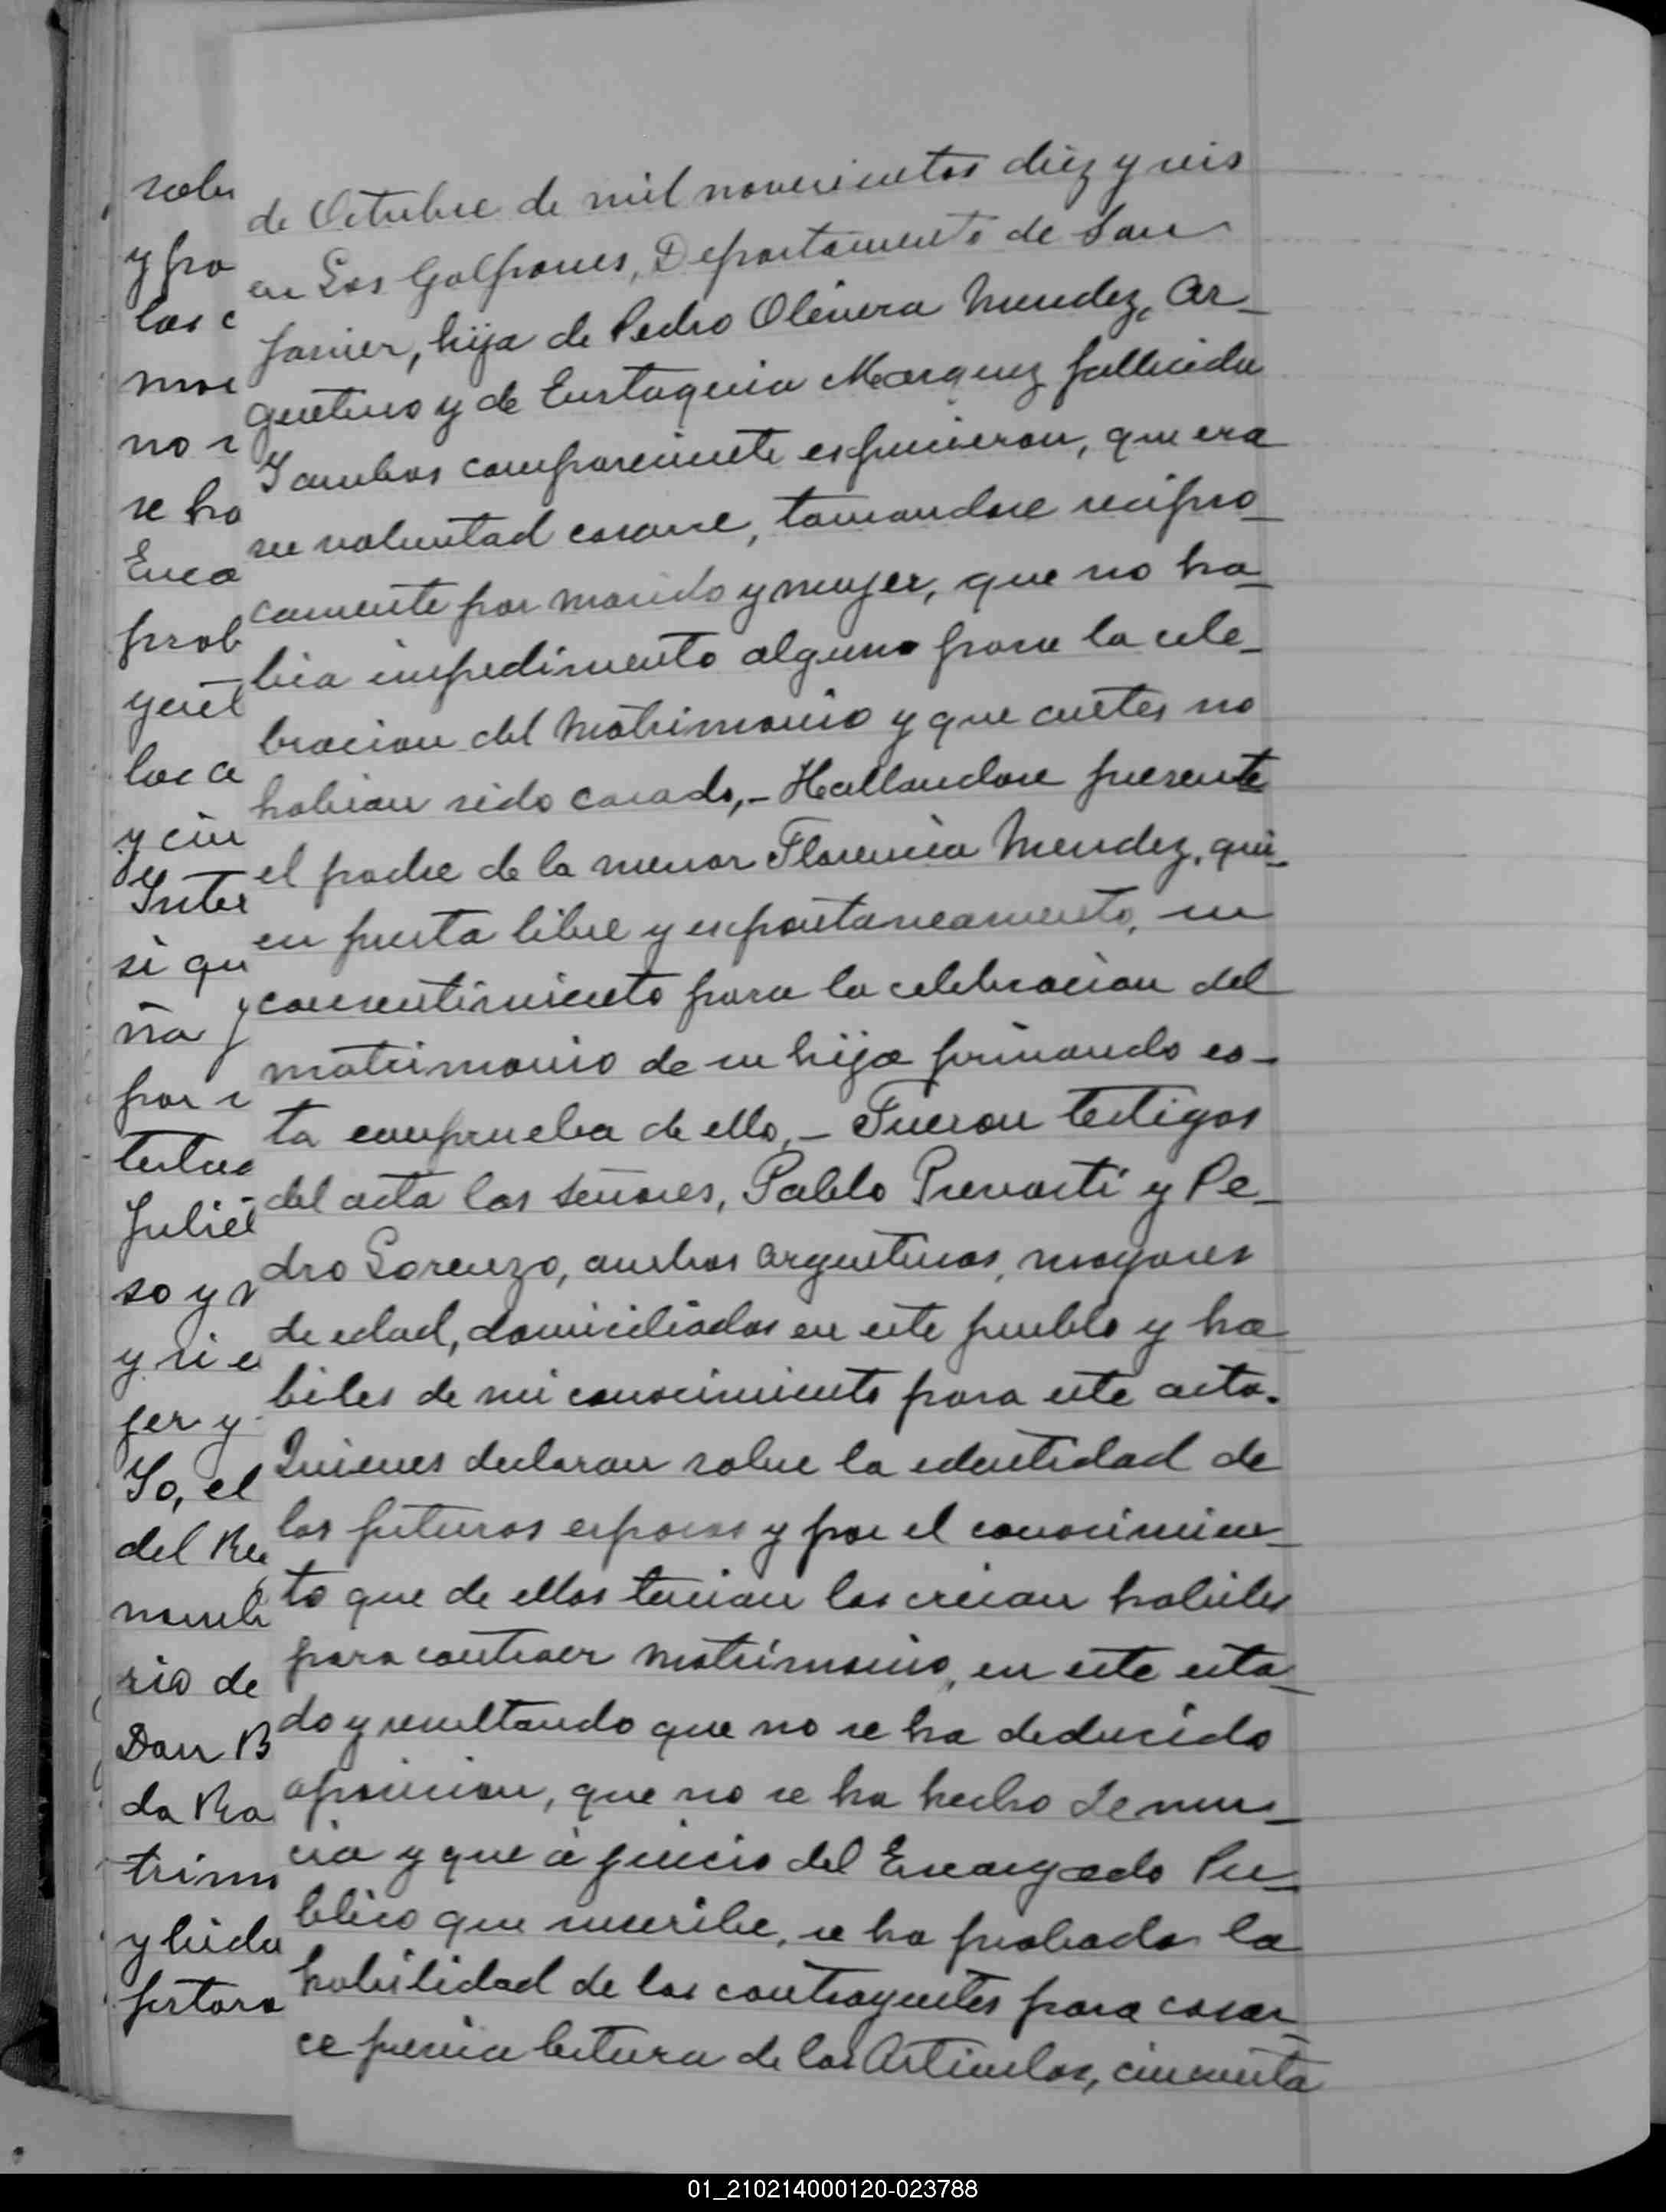 de Octubre de mil novecientos diez y seis
en Los Galpones, Departamento de San
Javier, hija de Pedro Olivera Mendez, Ar_
gentino y de Eustaquia Marquez fallecida
Y ambos compareciente espusieron, que era
su voluntad casarse, tomandose recipro_
camente por marido y mujer, que no ha_
bia impedimento alguno para la cele_
bracion del Matrimonio y que antes no
habian sido casado,_ Hallandose presente
el padre de la menor Florencia Mendez, qui_
en presta libre y espontaneamente, su
consentimiento para la celebracion del
matrimonio de su hija firmando es_
ta comprueba de ello,_ Fueron testigos
del acta los señores, Pablo Prevosti y Pe_
dro Lorenzo, ambos argentinos, mayores
de edad, domiciliados en este pueblo y ha_
biles de mi conocimiento para este acto.
Quienes declaran sobre la edentidad de
los futuros esposos y por el conocimien_
to que de ellos tenian los creian habiles
para contraer matrimonio, en este esta_
do y resultando que no se ha deducido
oposicion, que no se ha hecho denun_
cia y que á juicio del Encargado Pu_
blico que suscribe, se ha probado la
habilidad de los contrayentes para casar_
ce previa letura de los Articulos, cincuenta
sobr
y pro
las c
mos
no s
se ha
Enca
prob
y el
los a
y cin
Inter
si qu
ña y
por s
testue
Julié
so y
y si e
jer y
Yo, el
del Re
nomb
rio de
Don B
da Ra
trimo
y leida
festaro
01_210214000120-023788